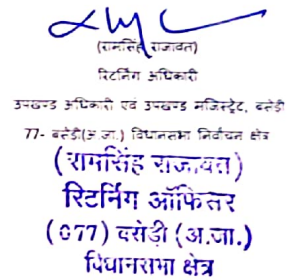 (रामसिंह राजावत)
रिटर्निंग अधिकारी
उपखण्ड अधिकारी एवं उपखण्ड मजिस्ट्रेट, बसेड़ी
77- बसेड़ी(अ.जा.) विधानसभा निर्वाचन क्षेत्र
(रामसिंह राजावत)
रिटर्निंग ऑफिसर
(077) बसेड़ी (अ.जा.)
विधानसभा क्षेत्र